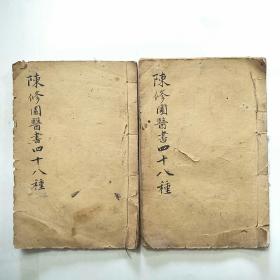 陳修園醫書四十八種
陳修園醫書四十八種